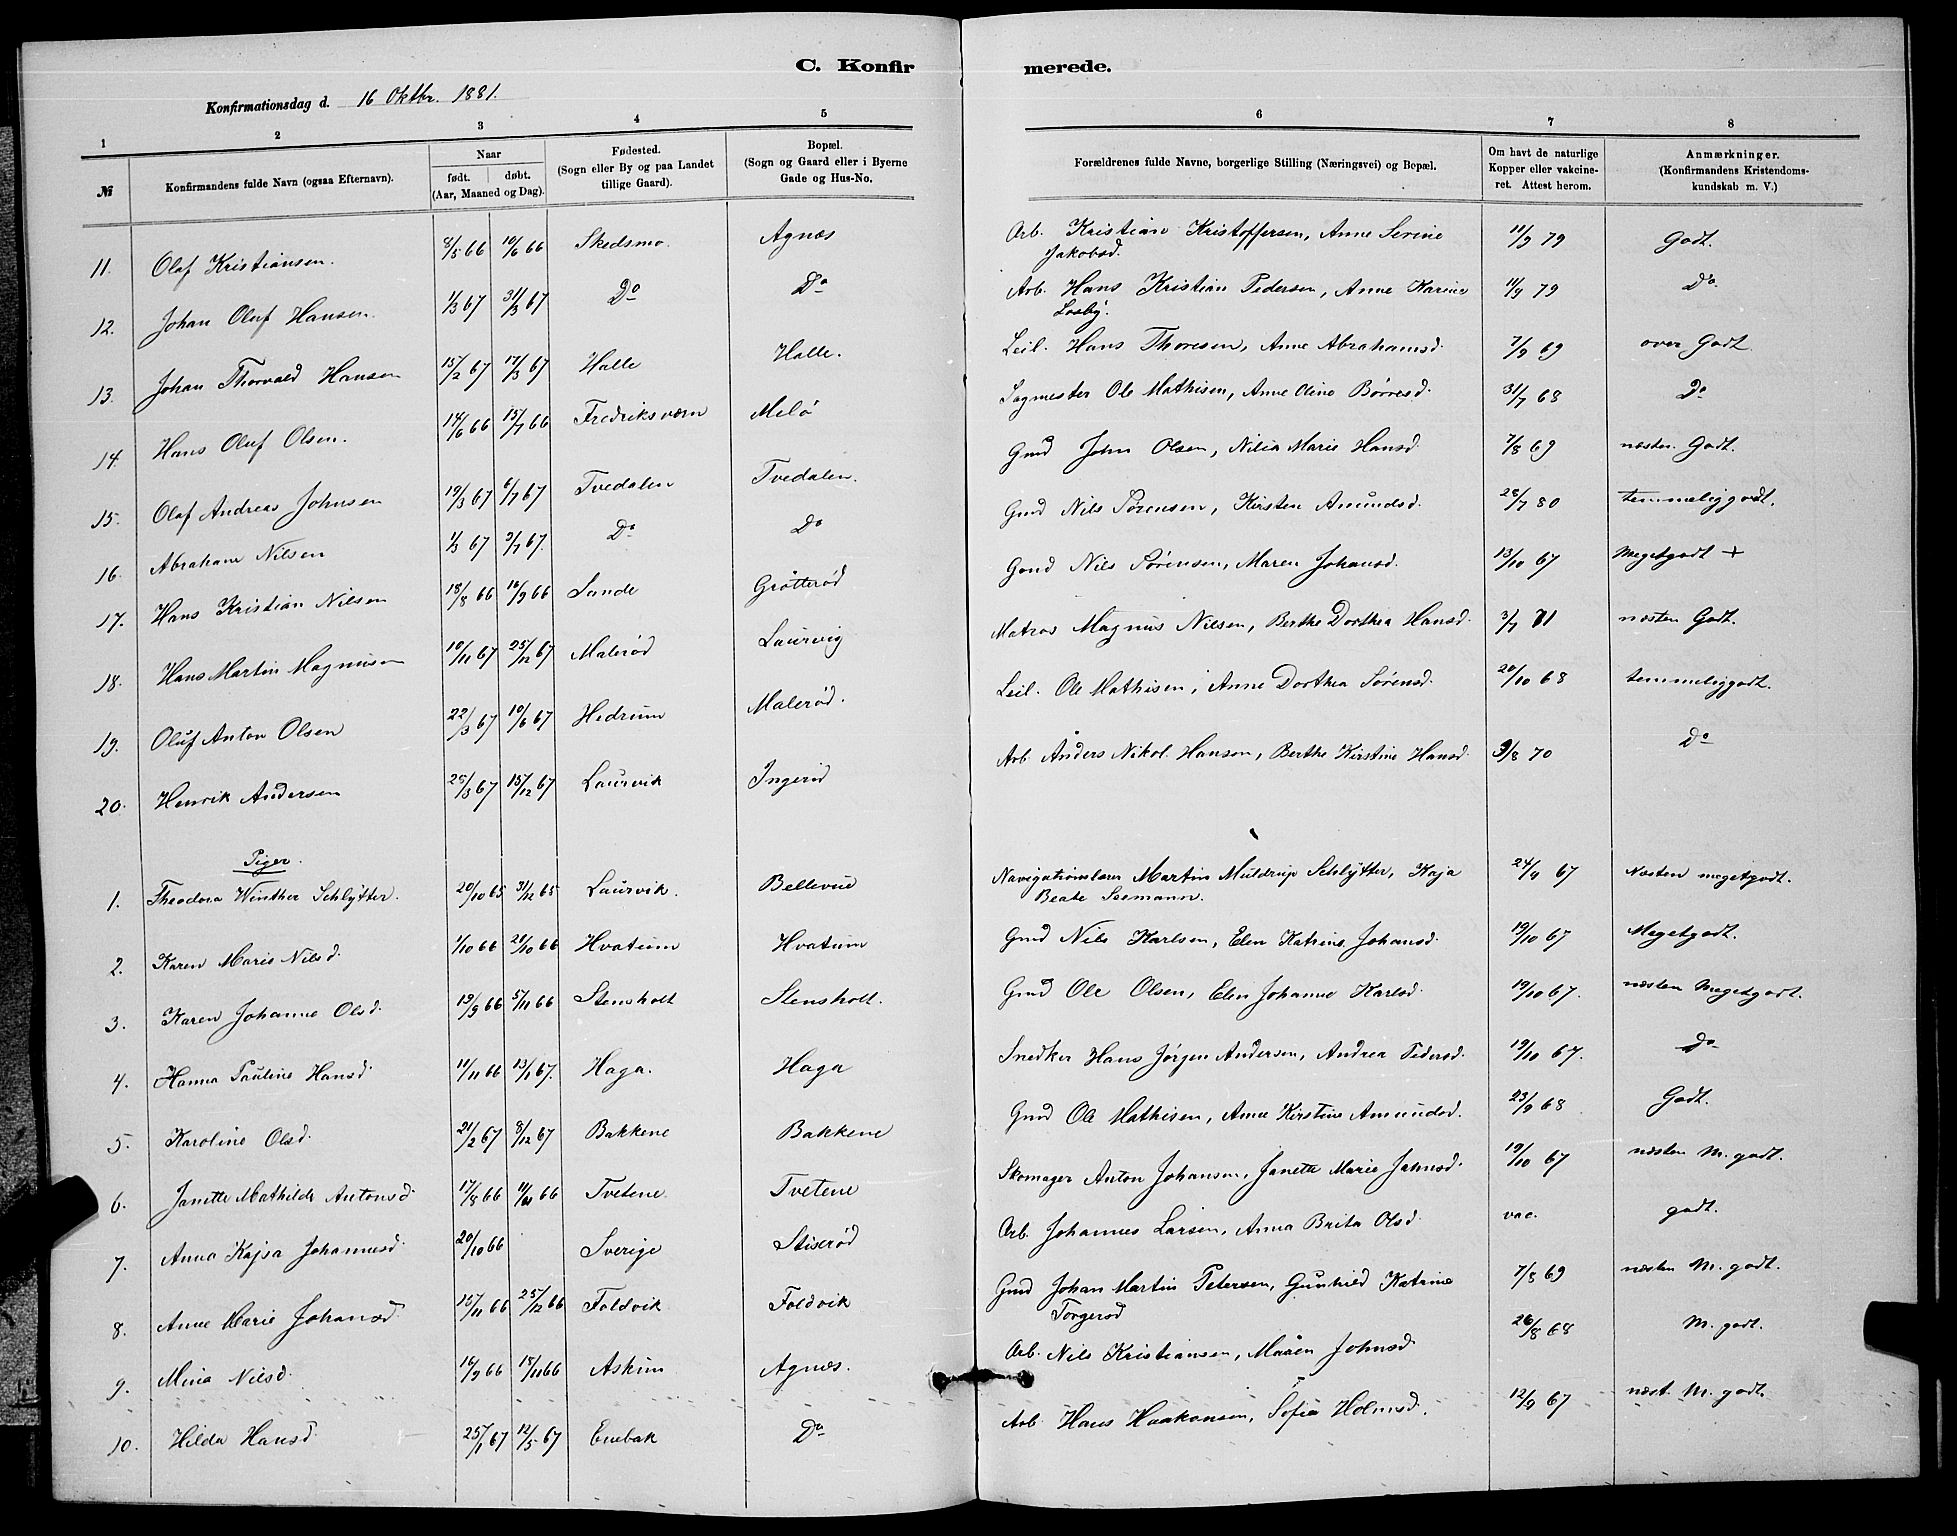 C. Konfirmerede.
Konfirmationsdag d. 16 Oktbr. 1881.
1 2 3 4 5 6 7 8
№ | Konfirmandens fulde Navn (ogsaa Efternavn). | Naar født. døbt. (Aar, Maaned og Dag). | Fødested. (Sogn eller By og paa Landet tillige Gaard). | Bopæl. (Sogn og Gaard eller i Byerne Gade og Hus-No. | Forældrenes fulde Navne, borgerlige Stilling (Næringsvei) og Bopæl. | Om havt de naturlige Kopper eller vakcineret. Attest herom. | Anmærkninger. (Konfirmandens Kristendomskundskab m. V.)
11. Olaf Kristiansen. 8/5 66 10/6 66 Skedsmo. Agnæs Arb. Kristian Kristoffersen, Anne Serine Jakobsd. 11/9 79 Godt.
12. Johan Oluf Hansen. 1/3 67 31/3 67 Do Do Arb. Hans Kristian Pedersen, Anne Karine Losby. 11/9 79 Do
13. Johan Thorvald Hansen 15/2 67 17/3 67 Halle Halle. Leil. Hans Thoresen, Anne Abrahamsd. 7/9 69 over Godt
14. Hans Oluf Olsen. 14/6 66 15/7 66 Fredriksværn Melø Sagmester Ole Mathisen, Anne Oline Børresd. 31/7 68 Do
15. Olaf Andreas Johnsen 19/3 67 6/7 67 Tvedalen Tvedalen. Gmd John Olsen, Nilia Marie Hansd. 7/8 69 næsten Godt.
16. Abraham Nilsen 1/3 67 2/7 67. Do Do Gmd Nils Sørensen, Kirsten Amundsd. 28/7 80 temmeliggodt.
17. Hans Kristian Nilsen 18/8 66 16/9 66 Sande Grøtterød Gmd Nils Sørensen, Maren Johansd. 13/10 67 Megetgodt +
18. Hans Martin Magnusen 10/11 67 25/12 67 Malerød Laurvig Matros Magnus Nilsen, Berthe Dorthea Hansd. 3/7 71 næsten Godt.
19. Oluf Anton Olsen 22/3 67 10/6 67 Hedrum Malerød. Leil. Ole Mathisen, Anne Dorthea Sørensd. 20/10 68 temmeliggodt.
20. Henrik Andersen 25/3 67 15/12 67 Laurvik Ingerid Arb. Anders Nikol. Hansen, Berthe Kirstine Hansd. 9/8 70 Do
Piger.
1. Theodora Winther Schlytter. 20/10 65 31/12 65 Laurvik. Bellevue Navigationslærer Martin Muldrup Schlytter, Kaja Beate Seemann. 24/9 67 Næsten megetgodt.
2. Karen Marie Nilsd. 1/10 66 28/10 66 Hvatum Hvatum Gmd Nils Karlsen, Elen Katrine Johansd. 19/10 67 Megetgodt.
3. Karen Johanne Olsd. 19/9 66 5/11 66 Stensholt Stensholt. Gmd Ole Olsen, Elen Johanne Karlsd. 19/10 67. næsten Megetgodt.
4. Hanna Pauline Hansd. 11/11 66 13/1 67. Haga. Haga Snedker Hans Jørgen Andersen, Andrea Pedersd. 19/10 67. Do
5. Karoline Olsd. 21/2 67 8/12 67 Bakkene Bakkene Gmd Ole Mathisen, Anne Kirstine Amundsd. 23/9 68 Godt.
6. Janette Mathilde Antonsd. 17/8 66 11/11 66 Tvetene. Tvetene Skomager Anton Johansen, Janette Marie Jahnsd. 19/10 67 næsten M. godt.
7. Anna Kajsa Johannesd. 20/10 66 Sverige Stiserød Arb. Johannes Larsen, Anna Brita Olsd. vac. godt.
8. Anne Marie Johansd. 15/11 66 25/12 66 Foldvik Foldvik Gmd Johan Martin Petersen, Gunhild Katrine Torgersd 7/8 69 næsten M. godt.
9. Mina Nilsd. 16/9 66 18/11 66 Askim Agnæs. Arb. Nils Kristiansen, Maren Johnsd 26/8 68 M. godt.
10. Hilda Hansd. 25/1 67 12/5 67 Enebak Do Arb. Hans Haakonsen, Sofie Holmsd. 12/9 67 næst. M. godt.